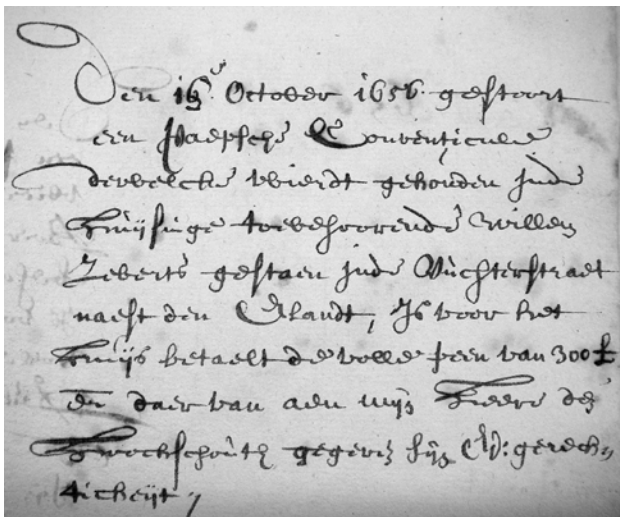 Den 16e October 1656 gestoort
een Paepsche Conventicule
derwelcke wierdt gehouden inde
huijsinge toebehoorende Willem
Zeberts gestaen inde Vuchterstraet
naest den Elandt, Is voor het
huijs betaelt de volle peen van 300 £
en daer van aen mijn heere de
Hoochschouth gegeven sijn Ed: gerech=
ticheijt